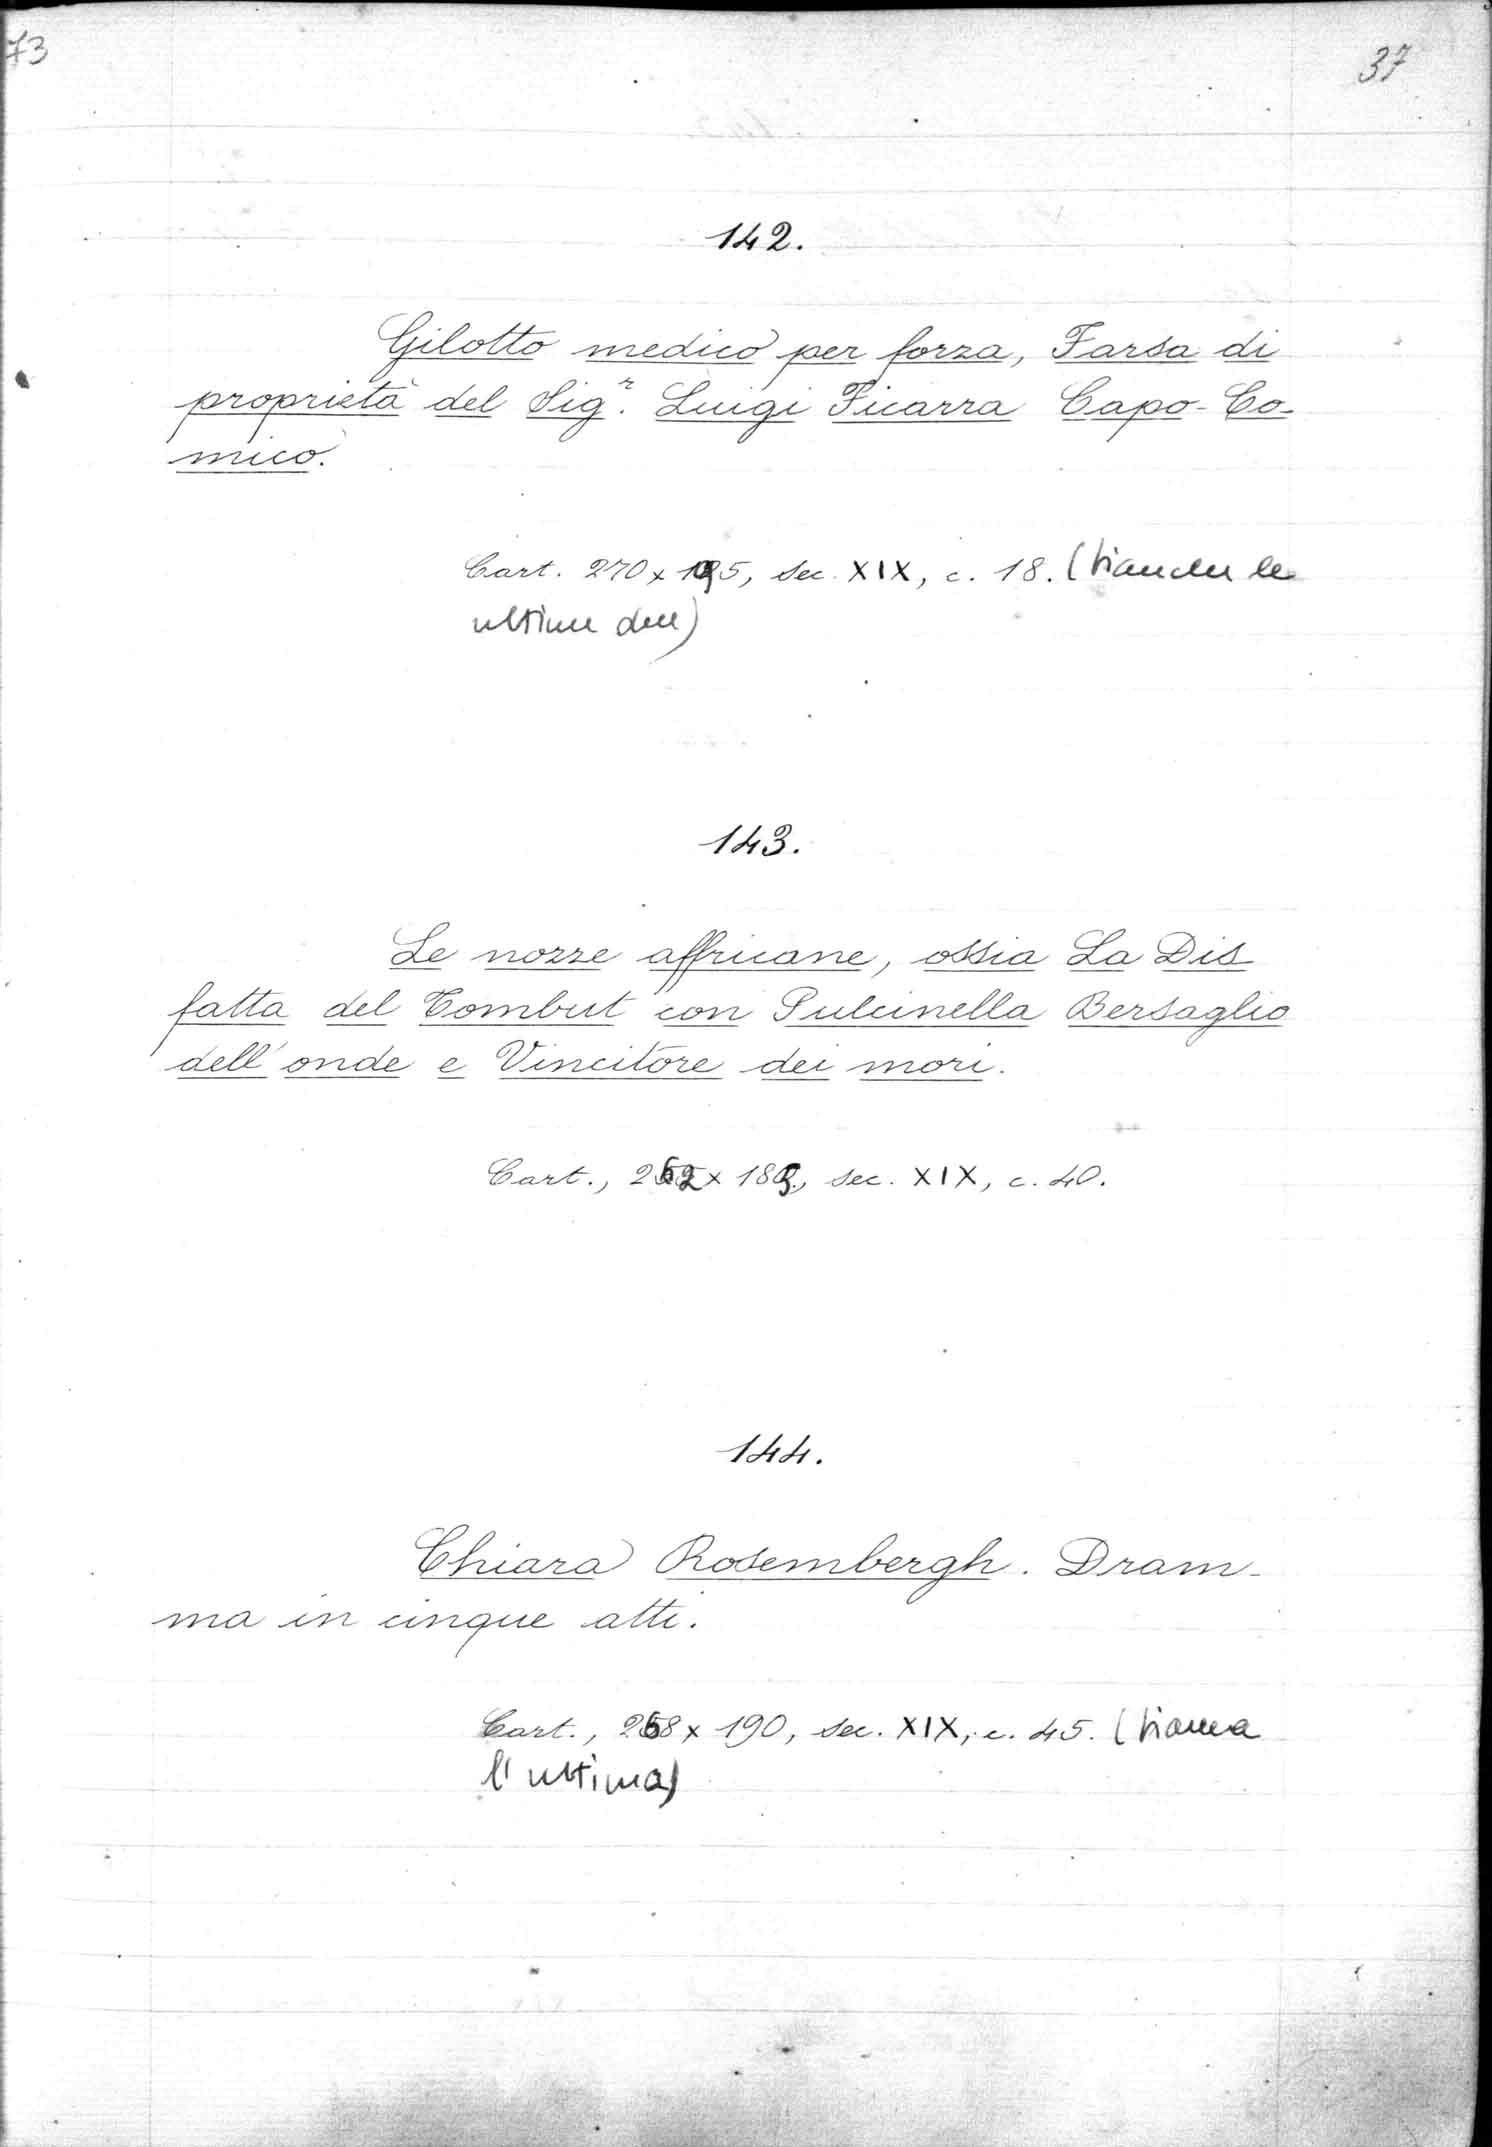 73
37
142.
Gilotto medico per forza, Farsa di
proprietà del Sig.r Luigi Ficarra Capo-Co-
mico.
Cart. 270 x 195, sec. XIX, c. 18. (bianche le
ultime due)
143.
Le nozze affricane, ossia La Dis
fatta del Tombut con Pulcinella Bersaglio
dell'onde e Vincitore dei mori.
Cart., 262 x 183, sec. XIX, c. 40.
144.
Chiara Rosembergh. Dram-
ma in cinque atti.
Cart., 268 x 190, sec. XIX, c. 45. (bianca
l'ultima)